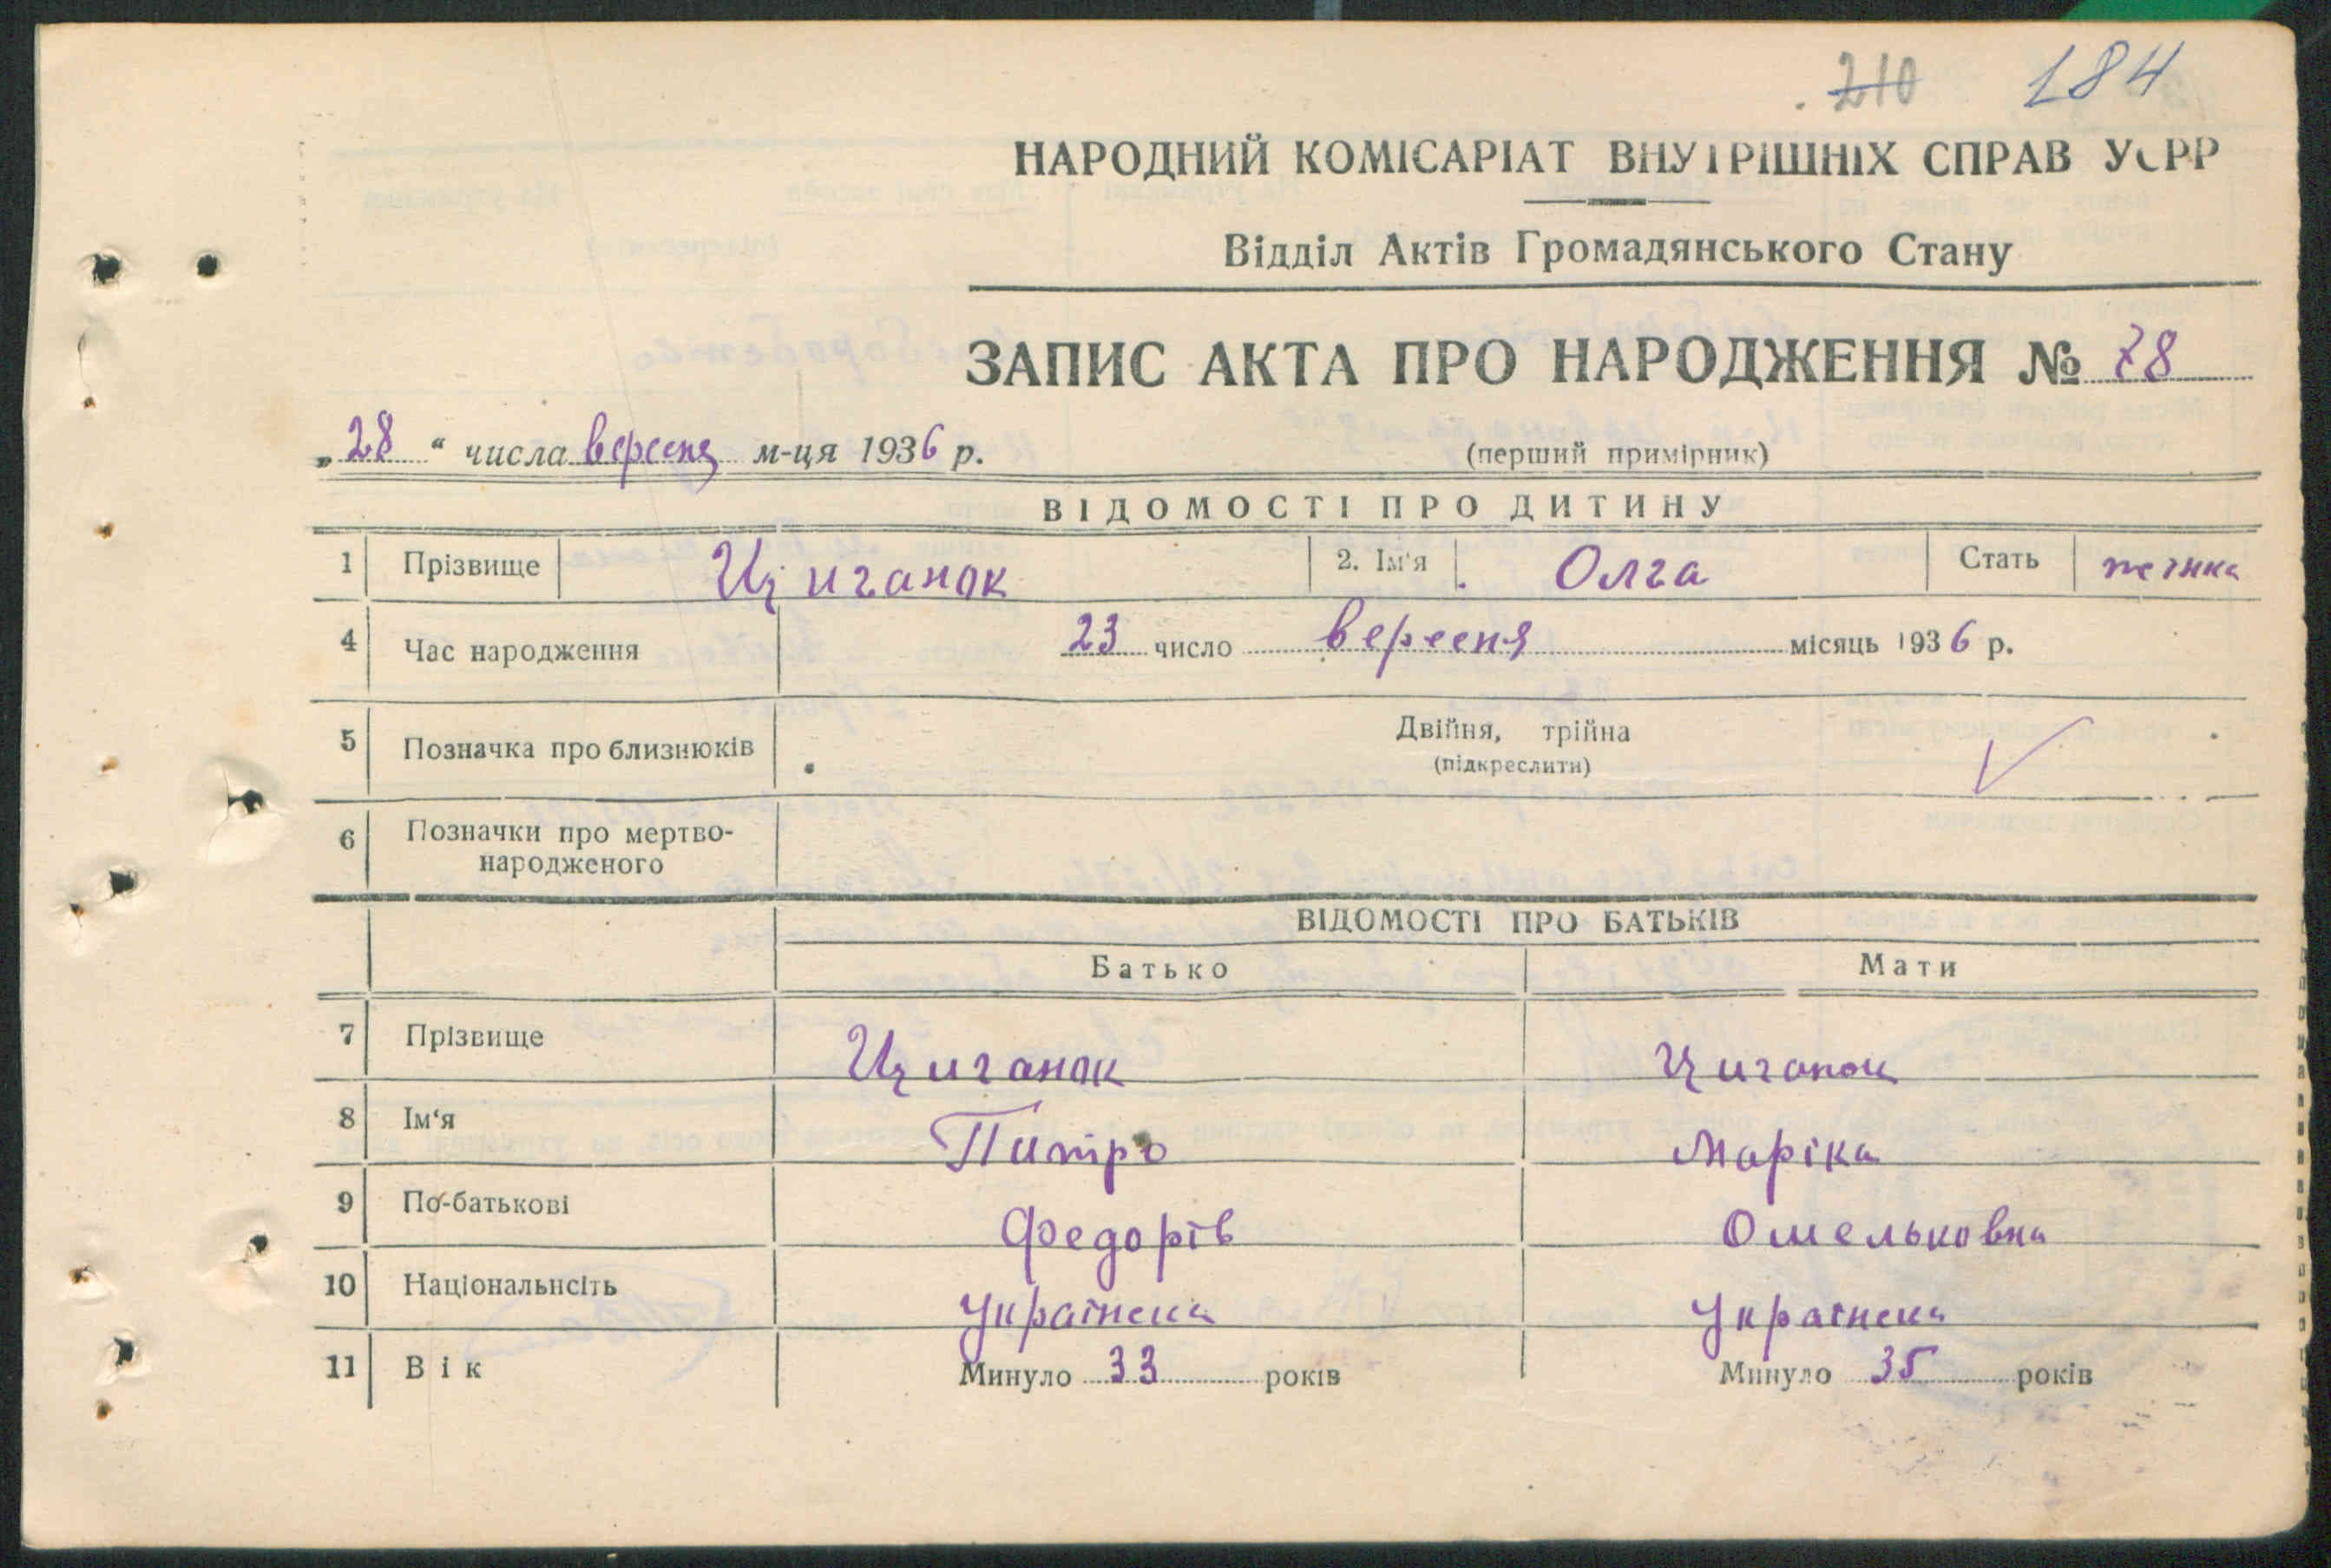 210 184
НАРОДНИЙ КОМІСАРІАТ ВНУТРІШНІХ СПРАВ УСРР
Відділ Актів Громадянського Стану
ЗАПИС АКТА ПРО НАРОДЖЕННЯ № 78
„28“ числа вересня м-ця 1936 р. (перший примірник)
ВІДОМОСТІ ПРО ДИТИНУ
1 Прізвище Циганок 2. Ім'я Олга Стать
4 Час народження 23 число вересня місяць 1936 р.
5 Позначка про близнюків Двійня, трійна
(підкреслити)
6 Позначки про мертво-
народженого
ВІДОМОСТІ ПРО БАТЬКІВ
Батько Мати
7 Прізвище Циганок Циганок
8 Ім‘я Питро Маріка
9 По-батькові Федорів Омельковна
10 Національнсіть Українска Українска
11 Вік Минуло 33 років Минуло 35 років